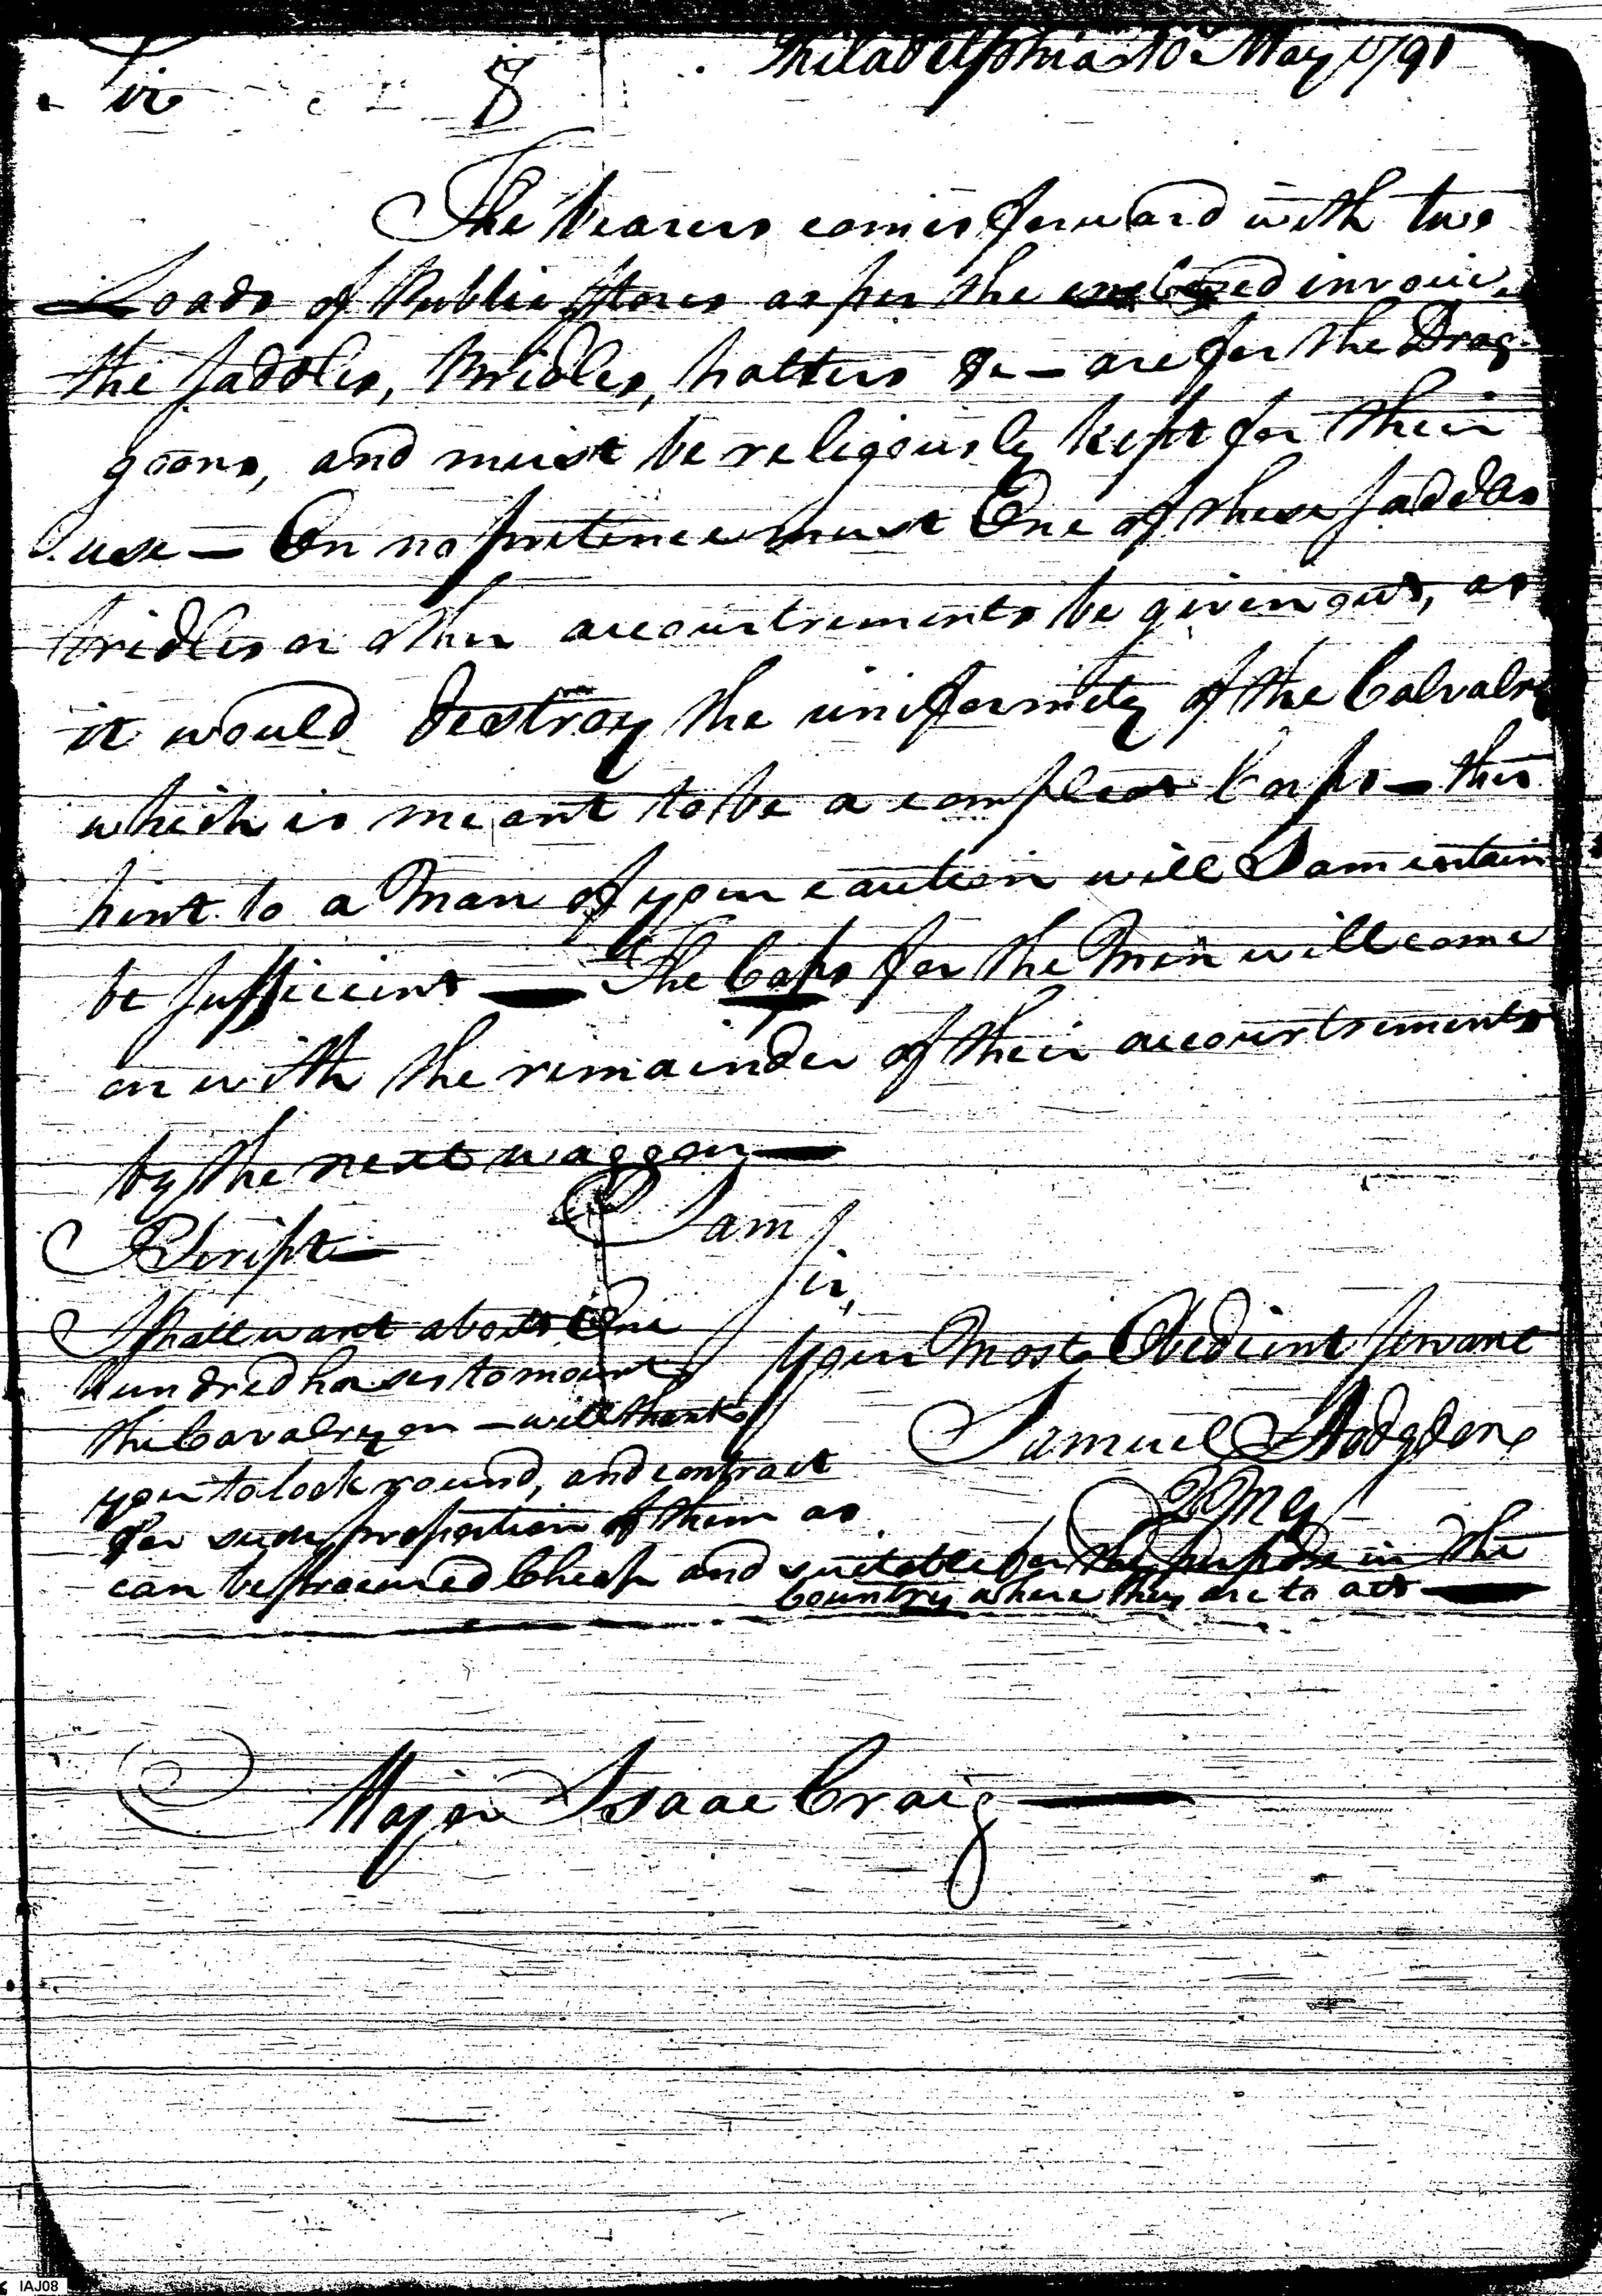 Philadelphia 10 May 1791
Sir
8
The bearers comes forward with two
Loads of Public Stores as per the enclosed invoice,
the Saddles, Bridles, halters &c — are for the Drag-
goons, and must be religiously kept for their
use — On no pretence must One of these Saddles
bridles or other accourtrements be given out, as
it would destroy the uniformity of the Calvalry
which is meant to be a compleat Corps — this
hint to a Man of your caution will I am certain
be Sufficient — The Caps for the Men will come
on with the remainder of their accourtrements
by the next waggon —
I am
Sir,
your Most Obedient Servant
Samuel Hodgdon
QMG
PScript —
I shall want about One
Hundred horses to mount
the Cavalry on — will thank
you to look round, and contract
for such proportion of them as
can be procured Cheap and suitable for the purpose in the
Country where they are to act —
Major Isaac Craig —
IAJ08